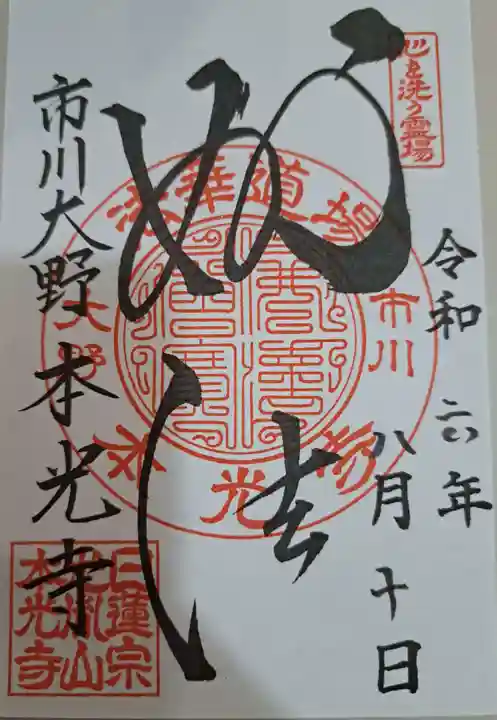 心を洗う霊場
令和六年
八月十日
妙法
法華道場
市川
大野
本光寺
市川大野本光寺
日蓮宗
本光寺